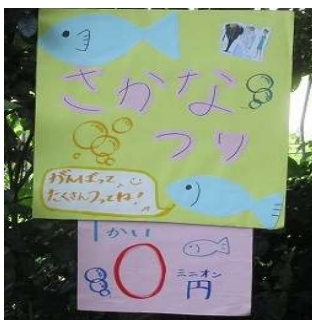 さかな
つり
がんばって
たくさんつってね!
1かい
0
ミニオン
円